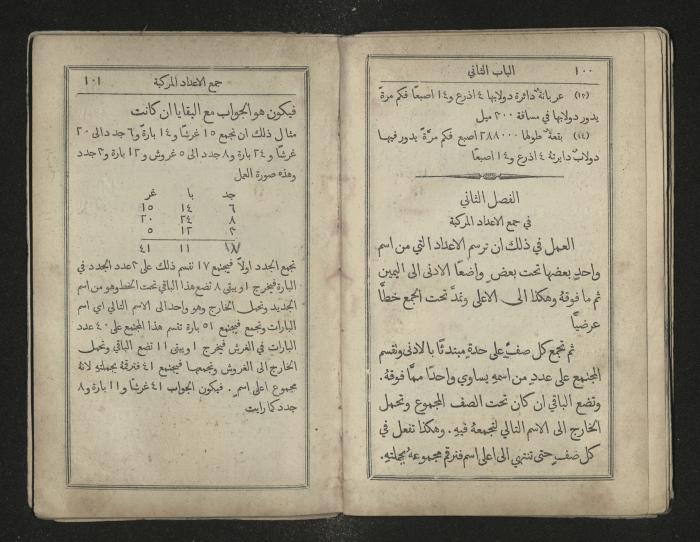 ١٠٠ الباب الثاني
(١٣) عربانة دائرة دولابها ٤ اذرع و١٤ اصبعًا فكم مرةً
يدور دولابها في مسافة ٢٠٠ ميل
(١٤) بقعة طولها ٢٨٨٠٠٠ اصبع فكم مرَّةً يدور فيها
دولاب دايرته ٤ اذرع و١٤ اصبعًا
الفصل الثاني
في جمع الاعداد المركبة
العمل في ذلك ان ترسم الاعداد التي من اسم
واحدٍ بعضها تحت بعضٍ واضعًا الادنى الى اليمين
ثم ما فوقهُ وهكذا الى الاعلى وتمدَّ تحت الجمع خطًّا
عرضيًّا
ثم تجمع كل صفٍّ على حدةٍ مبتدئًا بالادنى وتقسم
المجتمع على عددٍ من اسمهِ يساوي واحدًا ممَّا فوقهُ.
وتضع الباقي ان كان تحت الصف المجموع وتحمل
الخارج الى الاسم التالي لتجمعهُ فيهِ. وهكذا تفعل في
كل صفٍ حتى تنتهي الى اعلى اسم فترقم مجموعهُ بجملتهِ.
جمع الاعداد المركبة ١٠١
فيكون هو الجواب مع البقايا ان كانت
مثال ذلك ان نجمع ١٥ غرشًا و١٤ بارةً و٦ جدد الى ٢٠
غرشًا و٢٤ بارة و٨ جدد الى ٥ غروش و١٢ بارة و٣ جدد
وهذه صورة العمل
جد با غر
٦ ١٤ ١٥
٨ ٢٤ ٢٠
٣ ١٢ ٥
١١ ٤١
نجمع الجدد اولاً فيجتمع ١٧ نقسم ذلك على عدد الجدد في
البارة فيخرج ١ ويبقى ٨ نضع هذا الباقي تحت الخط وهو من اسم
الجديد ونحمل الخارج وهو واحد الى الاسم التالي اي اسم
البارات ونجمع فيجتمع ٥١ بارة نقسم هذا المجتمع على ٤٠ عدد
البارات في الغرش فيخرج ١ ويبقى ١١ نضع الباقي ونحمل
الخارج الى الغروش ونجمعها فيجتمع ٤١ فنرقمهُ بجملتهِ لانهُ
مجموع اعلى اسمٍ. فيكون الجواب ٤١ غرشًا و١١ بارة و٨
جدد كما رايت